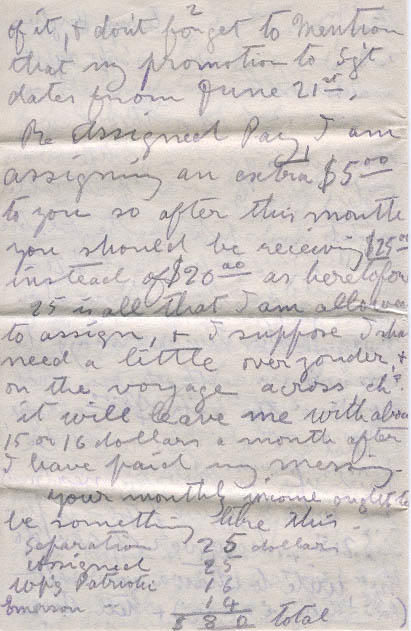 2
of it, & don't forget to mention
that my promotion to Sgt.
dates from June 21st.
Re Assigned Pay, I am
assigning an extra $5.00
to you so after this month
you should be receiving $25.00
instead of $20.00 as heretofor
25 is all that I am allowed
to assign, & I suppose I sha
need a little over yonder, &
on the voyage across
it will leave me with about
15 or 16 dollars a month after
I have paid my messing.
your monthly income ought to
be something like this.
Separation 25 dollars
Assigned 25
Wpg Patriotic 16
Emerson 14
$ 80 total